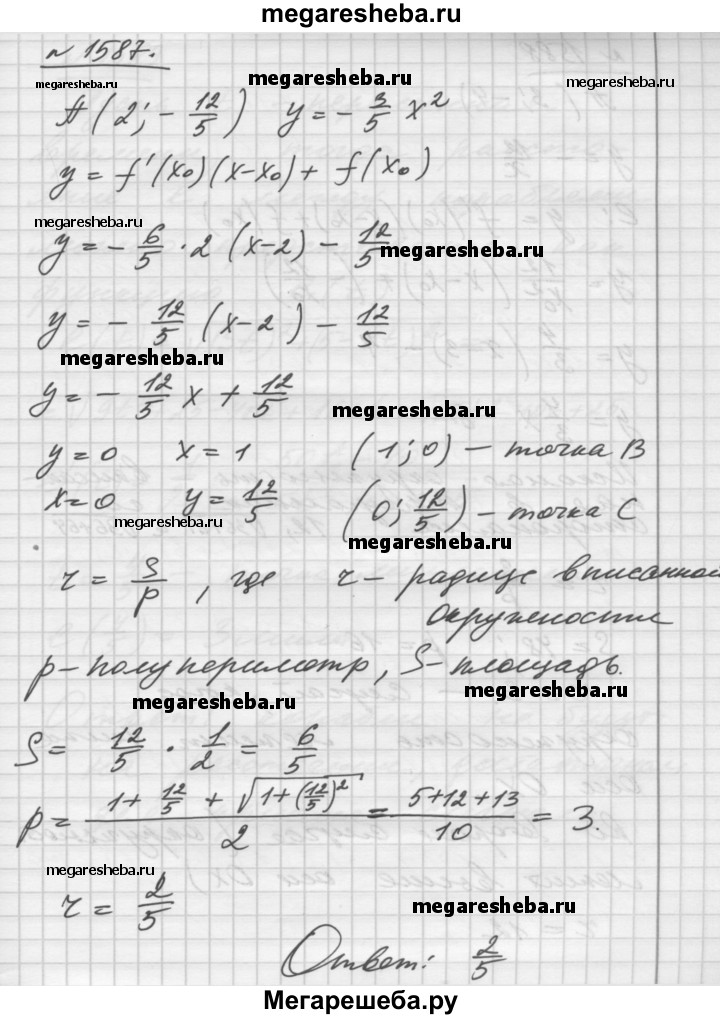 megaresheba.ru
N 1587.
megaresheba.ru megaresheba.ru megaresheba.ru
A(2; -12/5) y = -3/5 x²
y = f'(x₀)(x-x₀) + f(x₀)
megaresheba.ru
y = -6/5 · 2 (x-2) - 12/5
megaresheba.ru
y = -12/5 (x-2) - 12/5
megaresheba.ru
y = -12/5 x + 12/5
megaresheba.ru
y=0 x=1 (1;0) - точка B
x=0 y=12/5 (0; 12/5) - точка C
megaresheba.ru
megaresheba.ru
r = S/p, где r - радиус вписанной
окружености
p - полупериметр, S - площадь.
megaresheba.ru
megaresheba.ru
S = 12/5 · 1/2 = 6/5
p = (1 + 12/5 + √(1+(12/5)²))/2 = (5+12+13)/10 = 3.
megaresheba.ru
r = 2/5
megaresheba.ru
Ответ: 2/5
Мегарешеба.ру